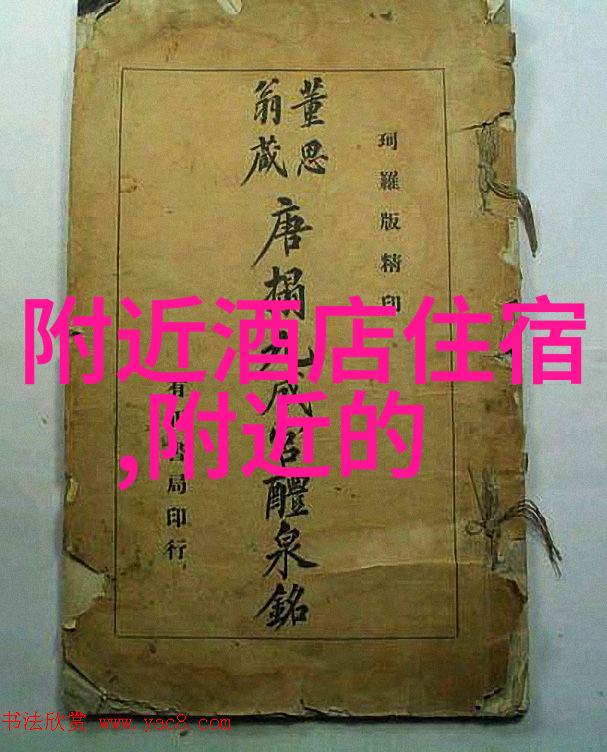 附近酒店住宿
,附近的
珂羅版精印
董思
翁藏
唐搨九成宮醴泉銘
有正書局印行
书法欣赏 www.yac8.com